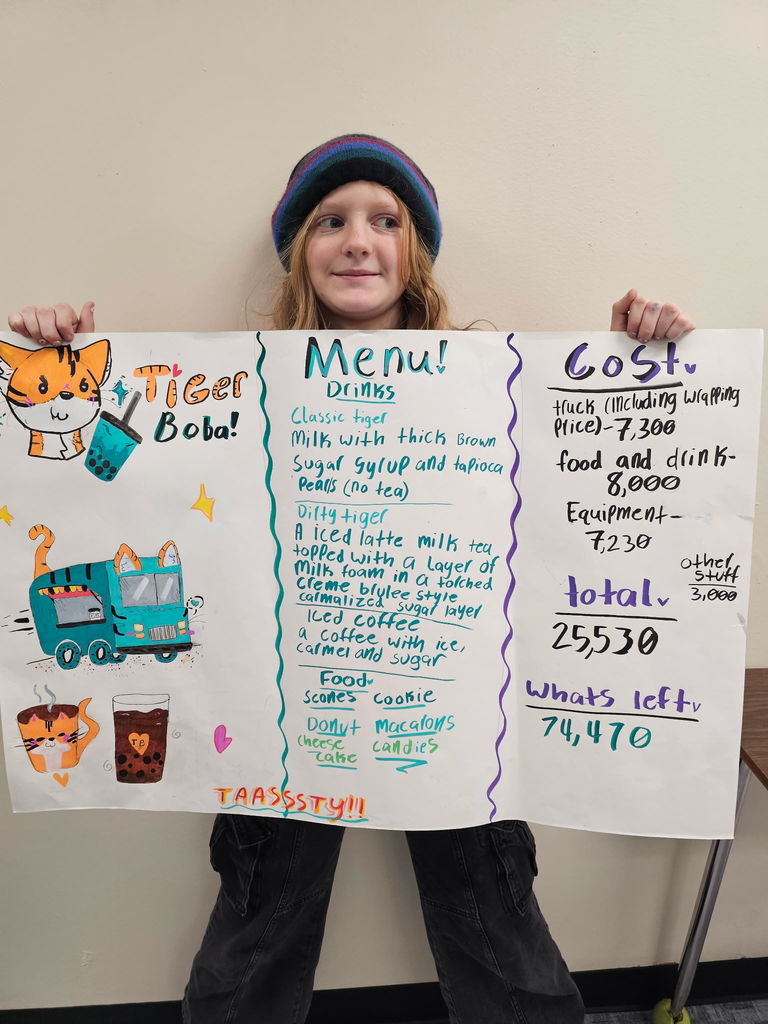 TIGER
Boba!
TB
TAASSSTY!!!
Menu!
Drinks
Classic tiger
Milk with thick Brown
Sugar syrup and tapioca
Pearls (no tea)
Dirty tiger
A iced latte milk tea
topped with a layer of
milk foam in a torched
creme brylee style
carmalized sugar layer
Iced coffee
a coffee with ice,
carmel and sugar
Food
Scones cookie
Donut macarons
cheese candies
cake
Cost
truck (Including wrapping
price)-7,300
food and drink-
8,000
Equipment-
7,230
other
stuff
3,000
total
25,530
Whats left
74,470